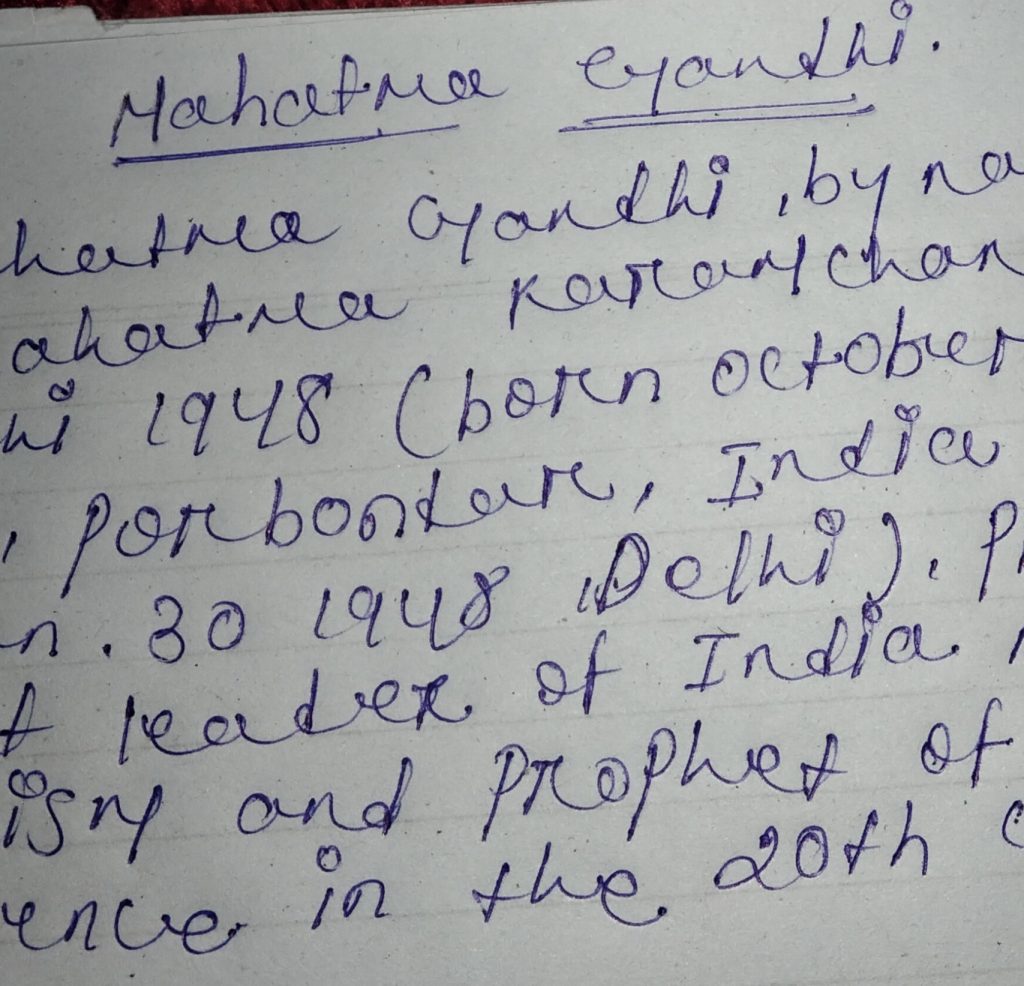 Mahatma Gandhi.
hatma Gandhi, by na
ahatma karamchan
hi 1948 (born october
, Porbondar, India
n. 30 1948, Delhi). Pr
t leader of India
ism and Prophet of
ence in the 20th c